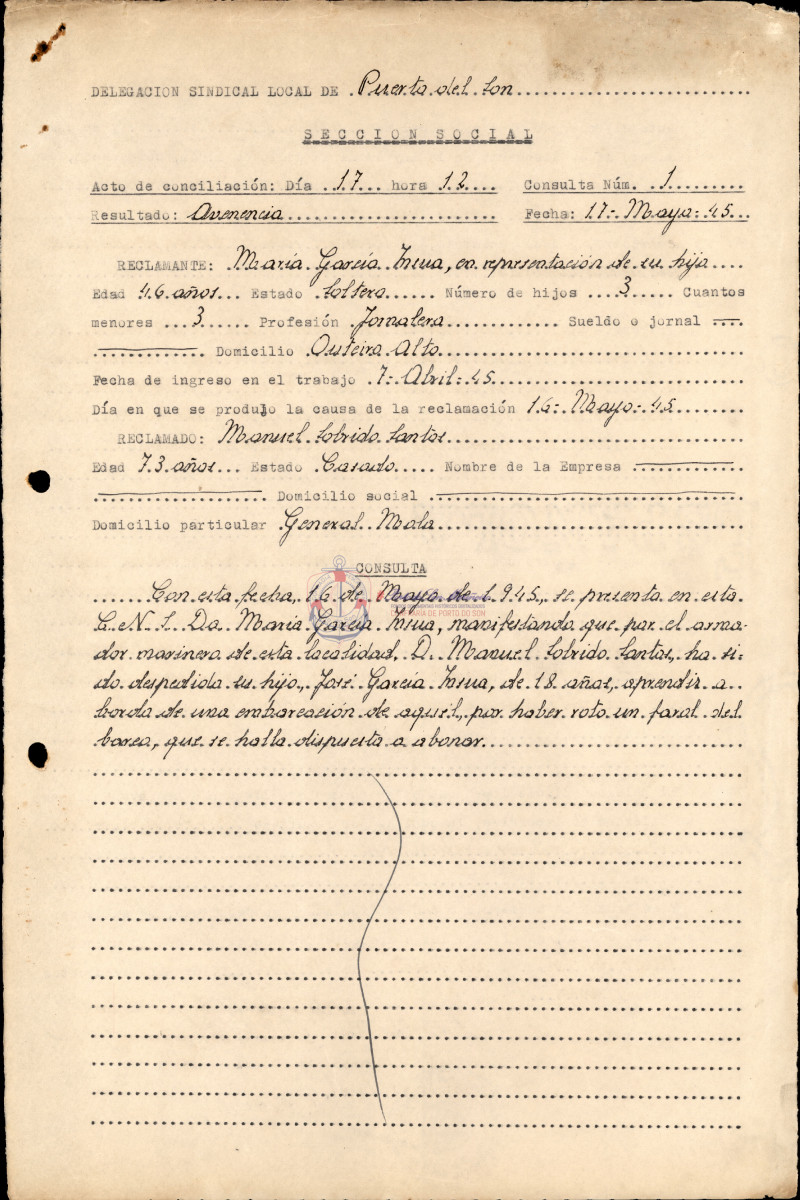 DELEGACION SINDICAL LOCAL DE Puerto del Son
SECCION SOCIAL
Acto de conciliación: Día 17 hora 12 Consulta Núm. 1
Resultado: Avenencia Fecha: 17- Mayo- 45
RECLAMANTE: María García Insua, en representación de su hijo
Edad 46 años Estado Soltera Número de hijos 3 Cuantos
menores 3 Profesión Jornalera Sueldo o jornal —
— Domicilio Outeiro Alto
Fecha de ingreso en el trabajo 7- Abril- 45
Día en que se produjo la causa de la reclamación 16- Mayo- 45
RECLAMADO: Manuel Sobrido Santos
Edad 73 años Estado Casado Nombre de la Empresa —
— Domicilio social —
Domicilio particular General Mola
CONSULTA
Con esta fecha, 16 de Mayo de 1.945, se presenta en esta
C. N. S. Da María García Insua, manifestando que por el arma-
dor marinero de esta localidad, D. Manuel Sobrido Santos, ha si-
do despedido su hijo, José García Insua, de 18 años, aprendiz a
bordo de una embarcación de aquel, por haber roto un farol del
barco, que se halla dispuesta a abonar.